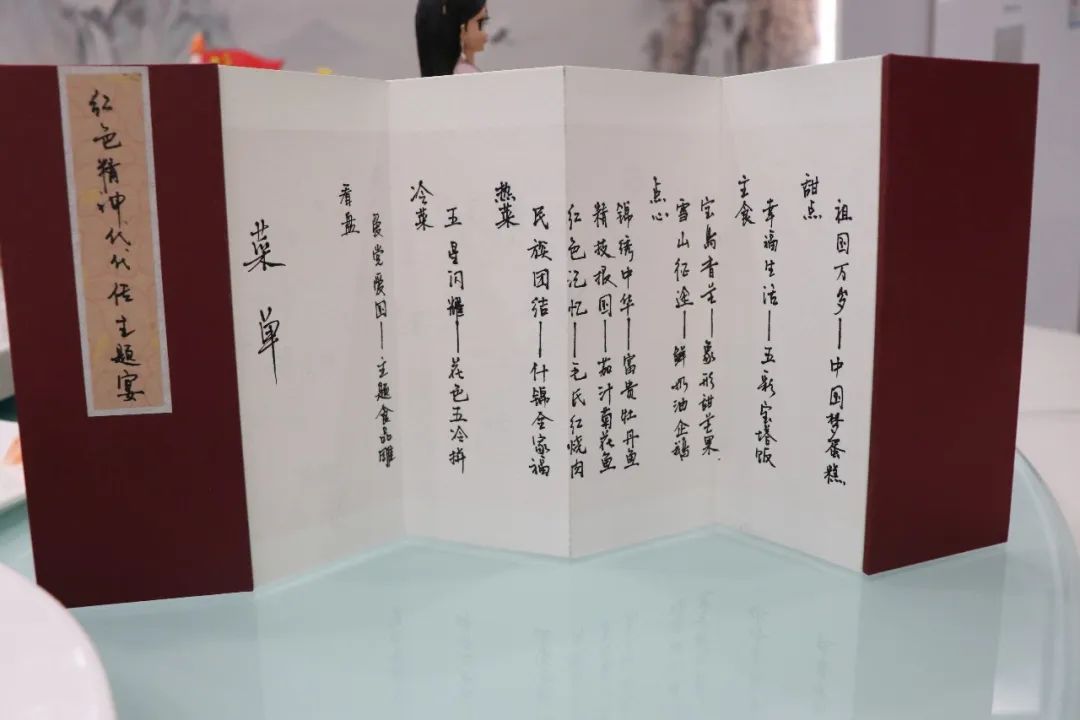 红色精神代代传主题宴
菜单
看盘
爱党爱国——主题食品雕
冷菜
五星闪耀——花色五冷拼
热菜
民族团结——什锦全家福
红色记忆——毛氏红烧肉
精技报国——茄汁菊花鱼
锦绣中华——富贵牡丹鱼
点心
雪山征途——鲜奶油企鹅
宝岛香芒——象形甜芒果
主食
幸福生活——五彩宝塔饭
甜点
祖国万岁——中国梦蛋糕